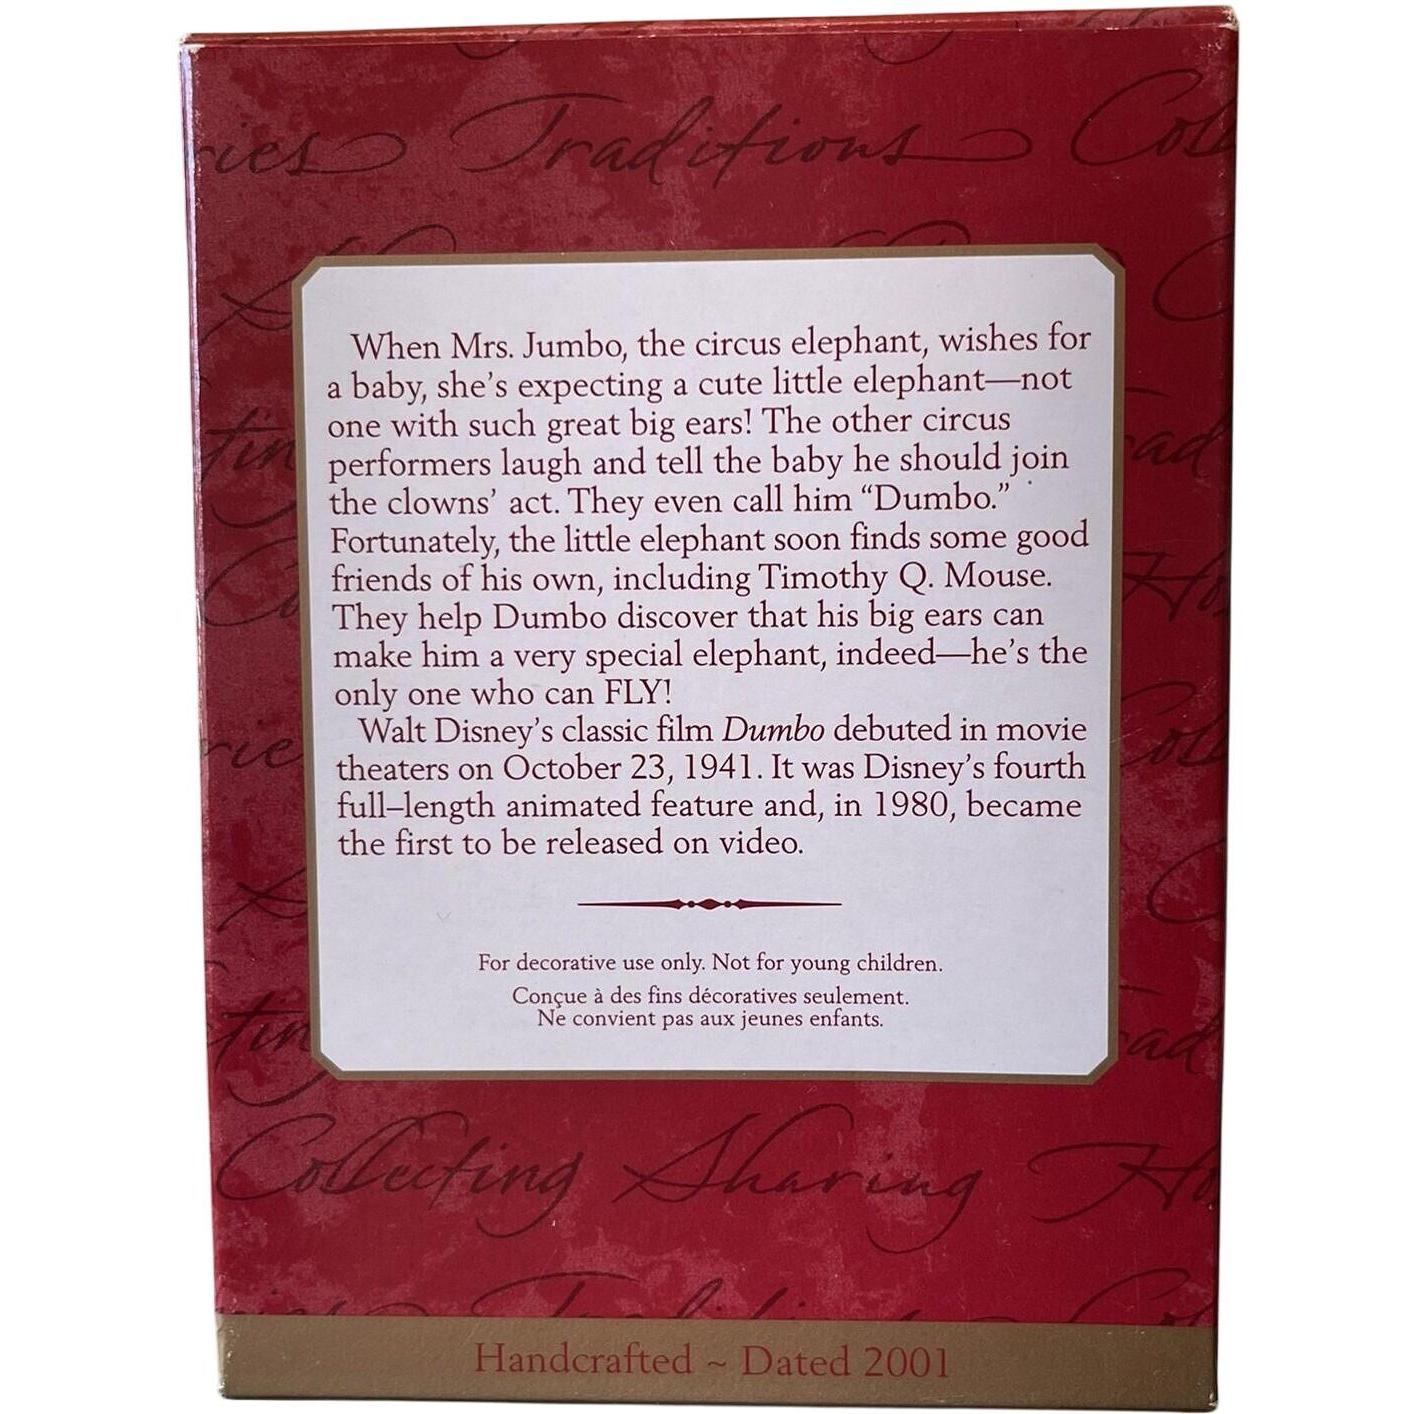 ries Traditions Coll
When Mrs. Jumbo, the circus elephant, wishes for
a baby, she's expecting a cute little elephant—not
one with such great big ears! The other circus
performers laugh and tell the baby he should join
the clowns' act. They even call him “Dumbo.”
Fortunately, the little elephant soon finds some good
friends of his own, including Timothy Q. Mouse.
They help Dumbo discover that his big ears can
make him a very special elephant, indeed—he's the
only one who can FLY!
Walt Disney's classic film Dumbo debuted in movie
theaters on October 23, 1941. It was Disney's fourth
full–length animated feature and, in 1980, became
the first to be released on video.
For decorative use only. Not for young children.
Conçue à des fins décoratives seulement.
Ne convient pas aux jeunes enfants.
Collecting Sharing Ho
Handcrafted ~ Dated 2001